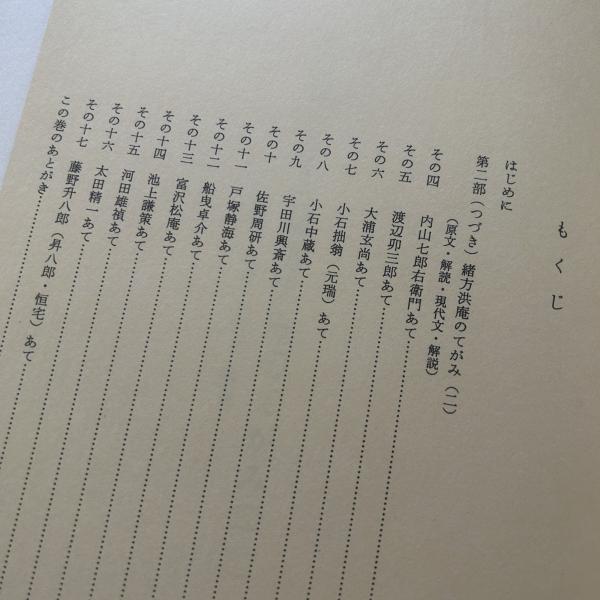 もくじ
はじめに
第二部（つづき）緒方洪庵のてがみ（二）
（原文・解読・現代文・解説）
その四　内山七郎右衛門あて
その五　渡辺卯三郎あて
その六　大浦玄尚あて
その七　小石拙翁（元瑞）あて
その八　小石中蔵あて
その九　宇田川興斎あて
その十　佐野周研あて
その十一　戸塚静海あて
その十二　船曳卓介あて
その十三　富沢松庵あて
その十四　池上謙策あて
その十五　河田雄禎あて
その十六　太田精一あて
その十七　藤野升八郎（昇八郎・恒宅）あて
この巻のあとがき